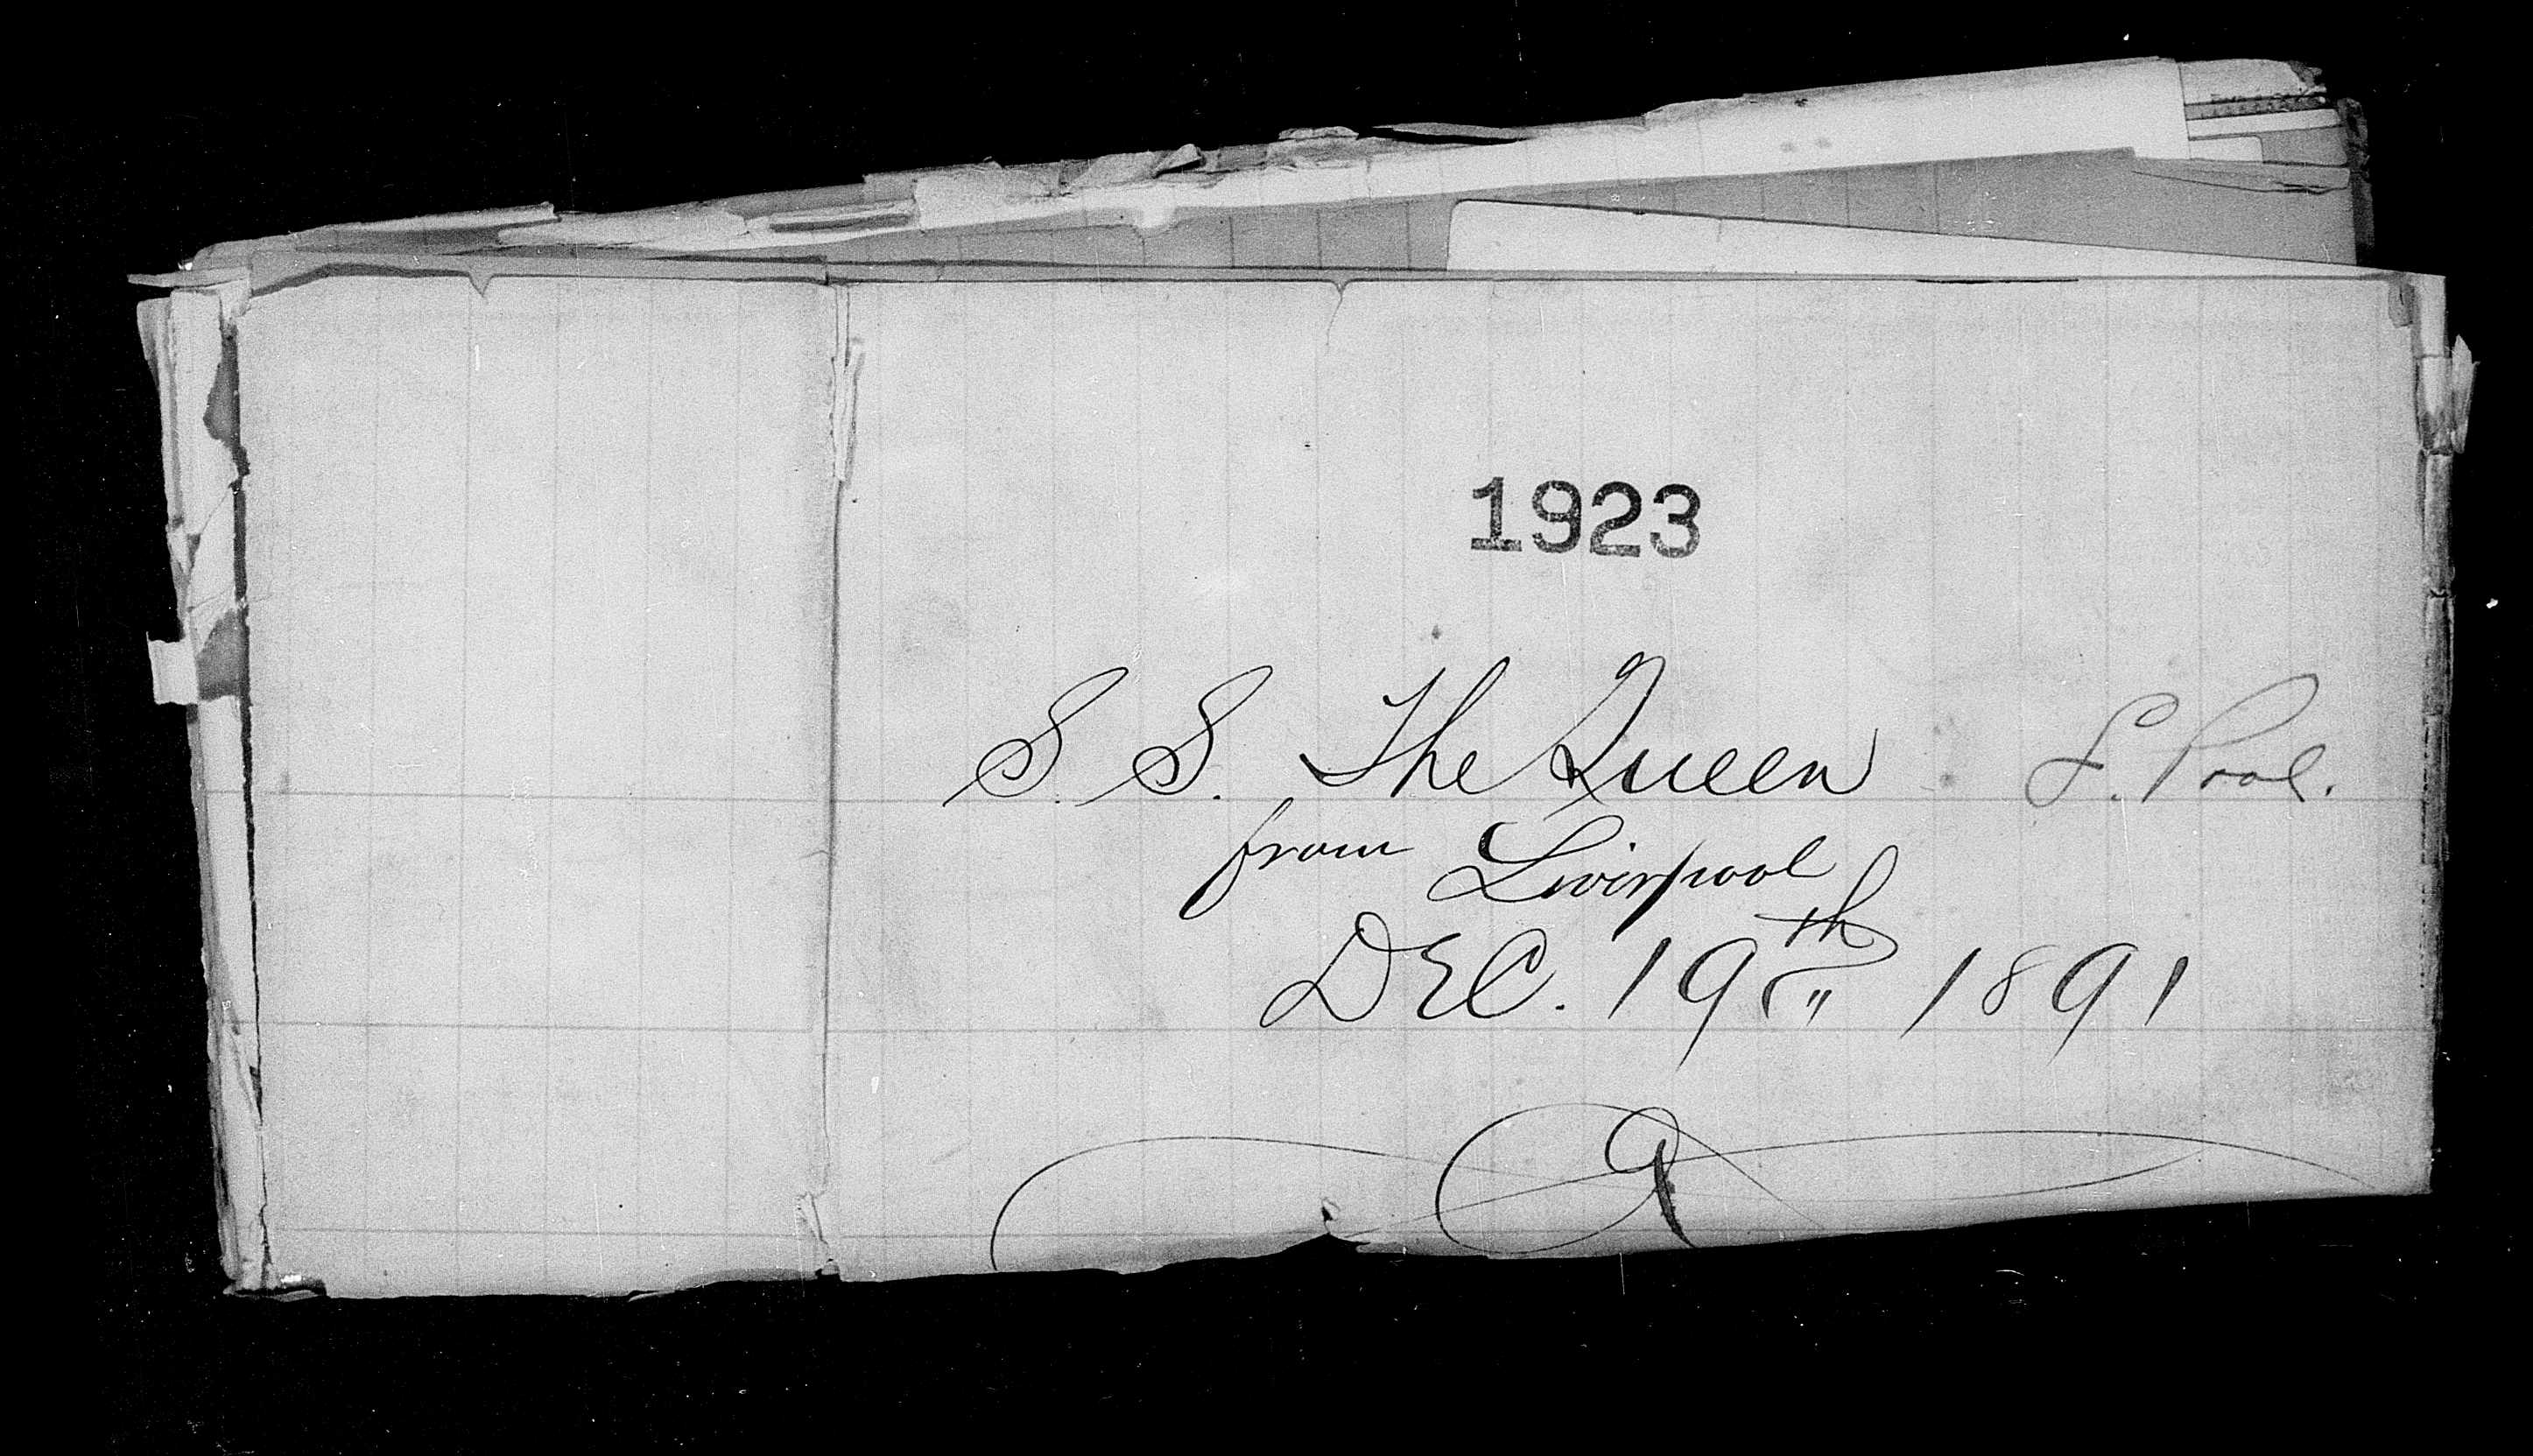 1923
S. S. The Queen L. Pool.
from Liverpool
DEC. 19th 1891